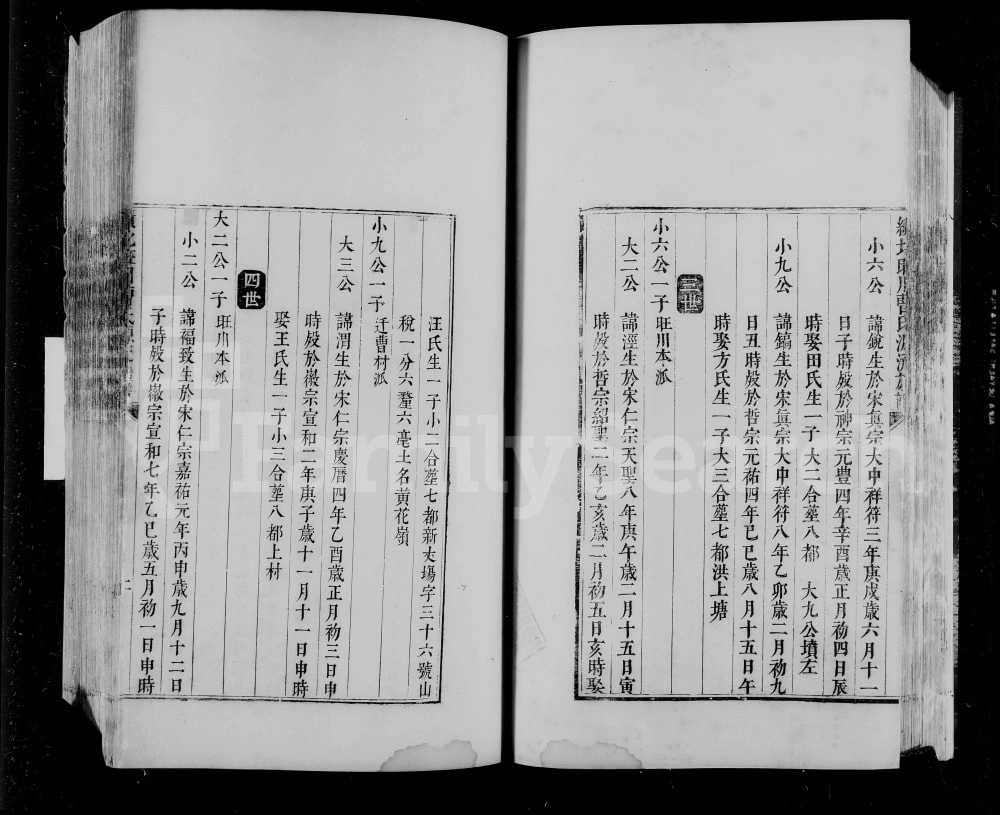 小六公
諱鋭生於宋真宗大中祥符三年庚戌歲六月十一
日子時歿於神宗元豊四年辛酉歲正月初四日辰
時娶田氏生一子大二合塟八都 大九公墳左
小九公
諱鎬生於宋真宗大中祥符八年乙卯歲二月初九
日丑時歿於哲宗元祐四年己巳歲八月十五日午
時娶方氏生一子大三合塟七都洪上塘
三世
小六公一子旺川本派
大二公
諱湮生於宋仁宗天聖八年庚午歲二月十五日寅
時歿於哲宗紹聖二年乙亥歲二月初五日亥時娶
汪氏生一子小二合塟七都新丈塲字三十六號山
稅一分六釐六毫土名黄花嶺
小九公一子迁曹村派
大三公
諱渭生於宋仁宗慶曆四年乙酉歲正月初三日申
時歿於徽宗宣和二年庚子歲十一月十一日申時
娶王氏生一子小三合塟八都上村
四世
大二公一子旺川本派
小二公
諱福致生於宋仁宗嘉祐元年丙申歲九月十二日
子時歿於徽宗宣和七年乙巳歲五月初一日申時
FamilySearch